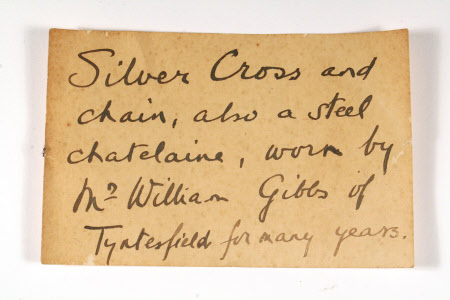 Silver Cross and
chain, also a steel
chatelaine, worn by
Mrs William Gibbs of
Tyntesfield for many years.